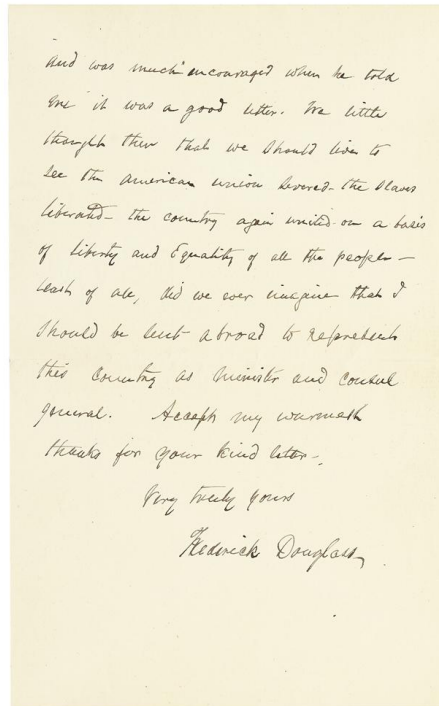 and was much encouraged when he told
me it was a good letter. We little
thought then that we should live to
see the American union severed - the slaves
liberated - the country again united on a basis
of liberty and Equality of all the people -
least of all, did we ever imagine that I
should be sent abroad to represent
this country as minister and consul
general. Accept my warmest
thanks for your kind letter -
Very truly yours
Frederick Douglass